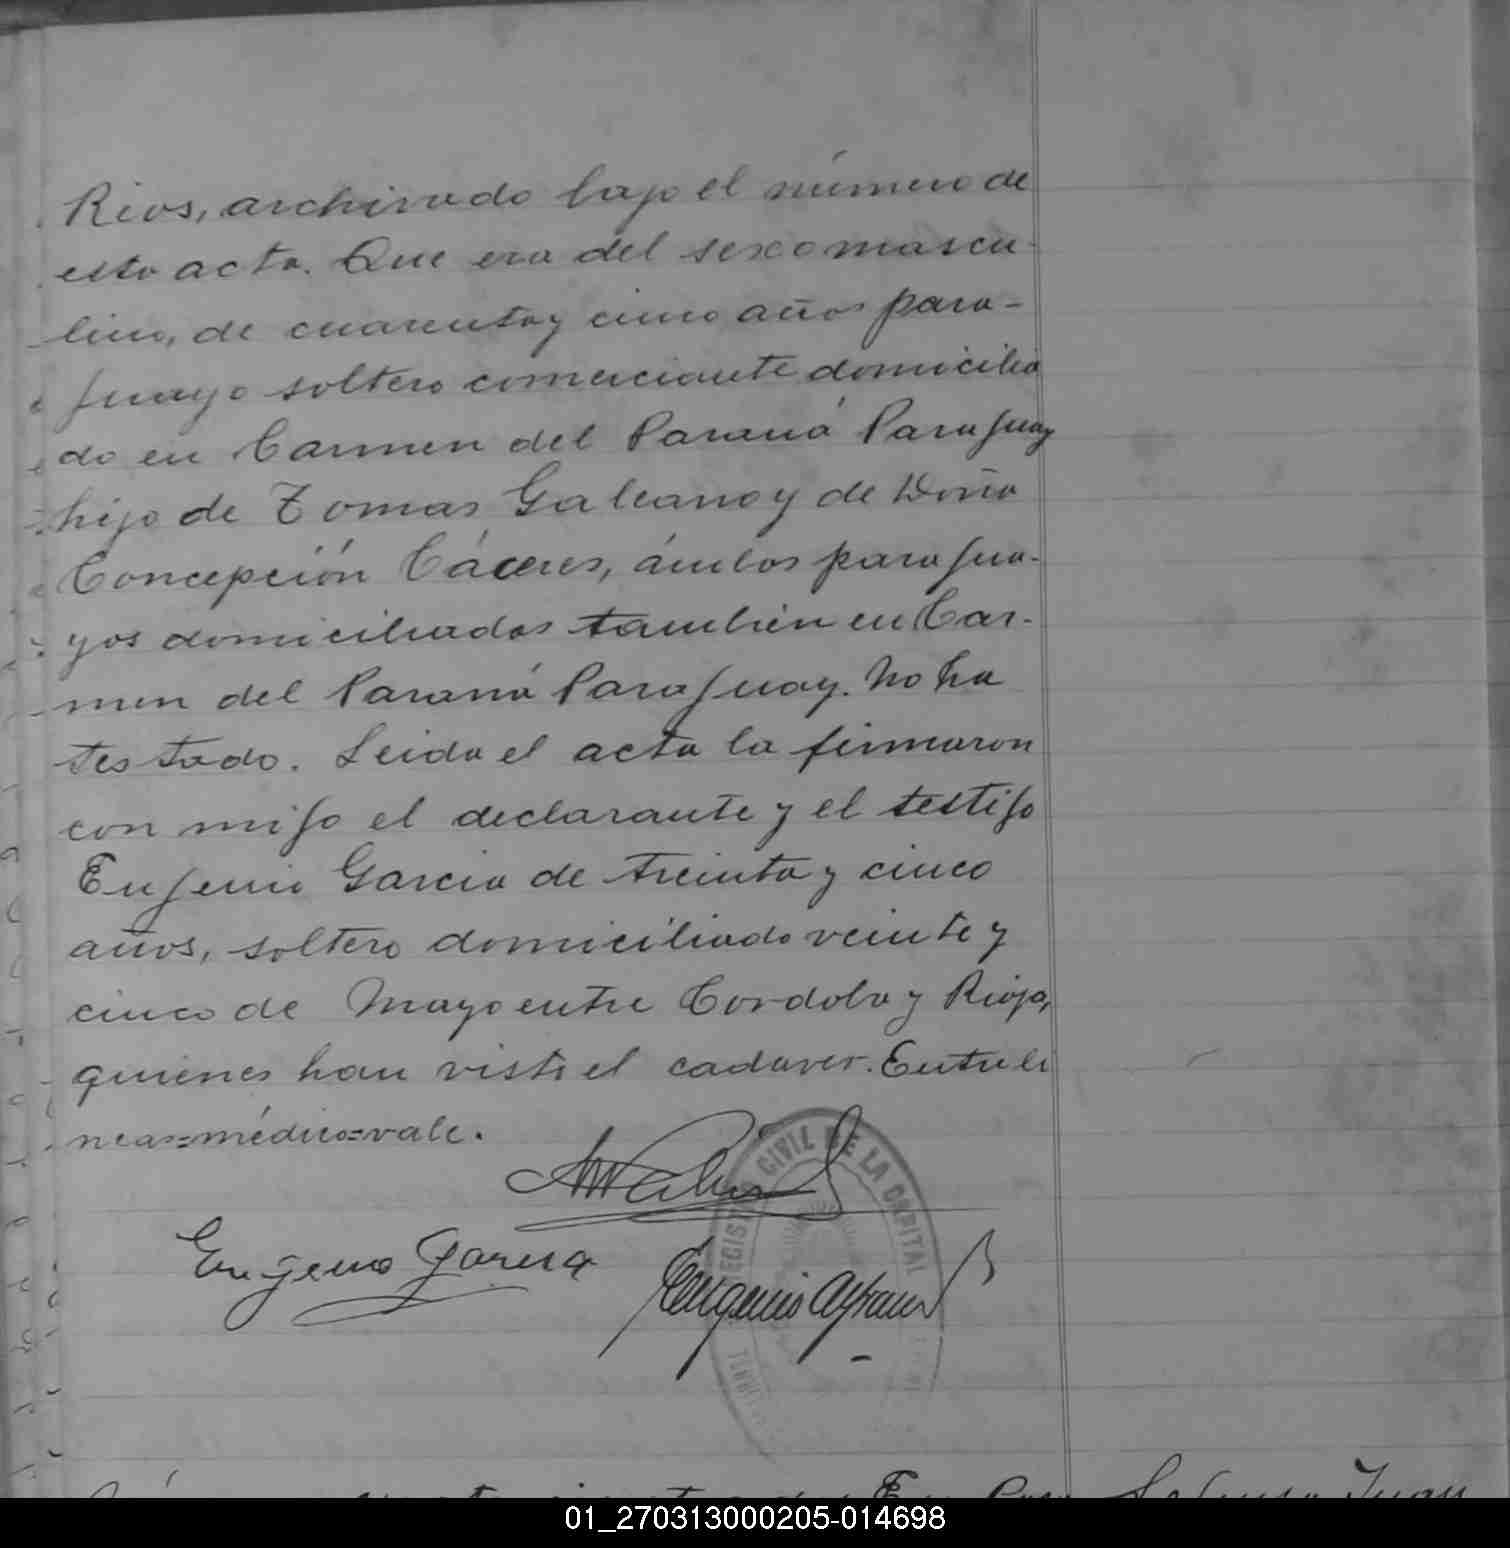 Rios, archivado bajo el número de
esta acta. Que era del sexo mascu-
lino, de cuarenta y cinco años para-
guayo soltero comerciante domicilia
do en Carmen del Paraná Paraguay
hijo de Tomas Galeano y de Doña
Concepción Cáceres, ámbos paragua-
yos domiciliados también en Car-
men del Paraná Paraguay. No ha
testado. Leida el acta la firmaron
con migo el declarante y el testigo
Eugenio Garcia de treinta y cinco
años, soltero domiciliado veinte y
cinco de Mayo entre Cordoba y Rioja,
quienes han visto el cadaver. Entreli
neas=médico=vale.
REGISTRO CIVIL DE LA CAPITAL
Eugenio Garcia
Eugenio
Juan
01_270313000205-014698